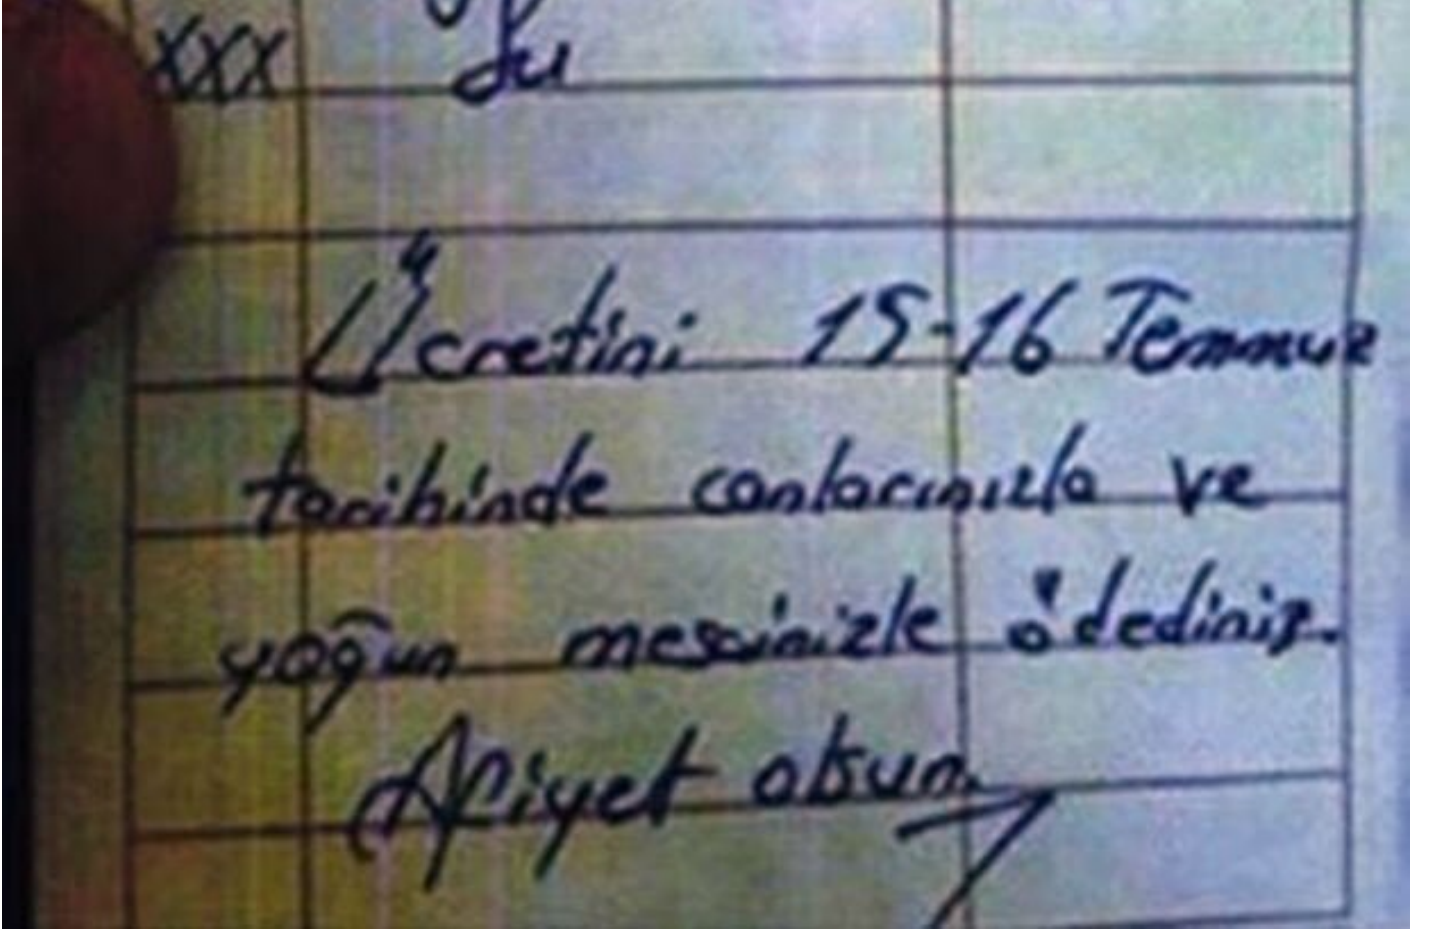 xxx Su
Ücretini 15-16 Temmuz
tarihinde canlarınızla ve
yoğun mesainizle ödediniz.
Afiyet olsun.